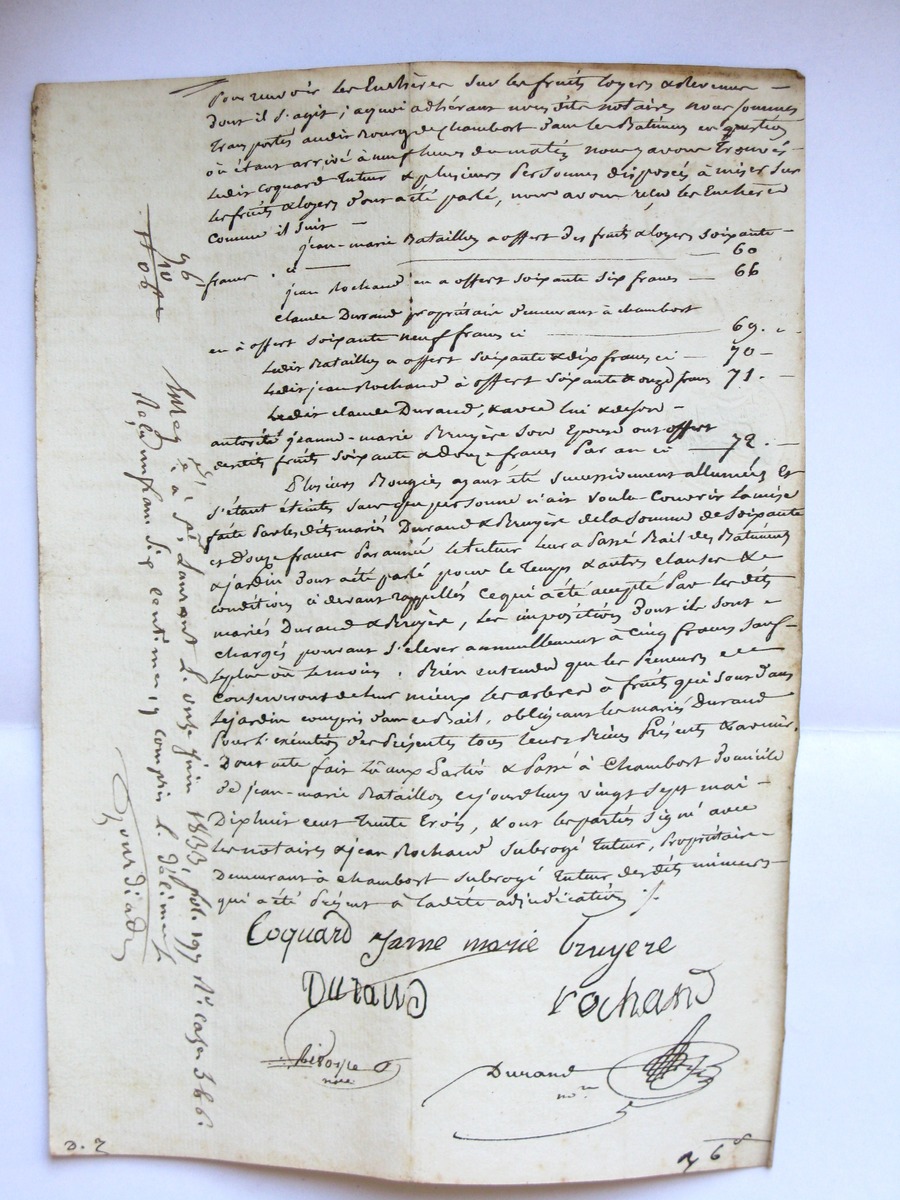 pour recevoir les Enchères sur les fruits loyers & revenus —
dont il s'agit ; aquoi adhérant nous dits notaires nous sommes
transportés audit Bourg de chambort dans les Batiments en question
où étant arrivé à neuf heures du matin nous y avons trouvés —
Ledit Coquard tuteur & plusieurs personnes disposés à miser sur
les fruits & loyers dont a été parlé, nous avons reçu les Enchères
comme il suit —
jean-marie Bataillon a offert des fruits & loyers soixante —
francs . ci — 60
jean Rochand en a offert soixante six francs — 66
claude Durand propriétaire demeurant à chambort
en à offert soixante neuf francs ci — 69. "
Ledit Bataillon a offert soixante & dix francs ci — 70 —
Ledit jean Rochand à offert soixante & onze francs 71. —
Ledit claude Durand, & avec lui & de son —
autorité jeanne-marie Bruyère son Epouse ont offert
desdits fruits soixante & douze francs par an ci — 72. —
Plusieurs Bougies ayant été successivement allumées et
s'étant éteintes sans que personne n'ait voulu couvrir la mise
faite par lesdits mariés Durand & Bruyère de la somme de soixante
et douze francs par année le tuteur leur a passé Bail des Batiments
& jardin dont a été parlé pour le temps & autres clauses & &
conditions ci devant rappellés ce qui a été accepté par les dits
mariés Durand & Bruyère, les impositions dont ils sont —
chargés pouvant s'élever annuellement à cinq francs sauf —
le plus ou le moins . Bien entendu que les preneurs
conserveront de leur mieux les arbres à fruits qui sont dans
le jardin compris dans ce Bail, obligeant les mariés Durand
pour l'exécution des présentes tous leurs Biens présents & avenir.
Dont acte fait lû aux parties & passé à Chambort domicile
de jean-marie Bataillon cejourdhuy vingt sept mai —
Dix huit cent trente trois, & ont les parties signé avec
les notaires & jean Rochand subrogé tuteur, propriétaire —
Demeurant à chambort subrogé tuteur desdits mineurs
qui a été présent à ladite adjudication ./.
Coquard jane marie bruyere
Durand rochand
Durand
nore
D. 2
6
Enregé. à St. Laurent le onze juin 1833, fol. 197 Ro. case 3 & 6.
Reçu un franc dix centimes, y compris le décime